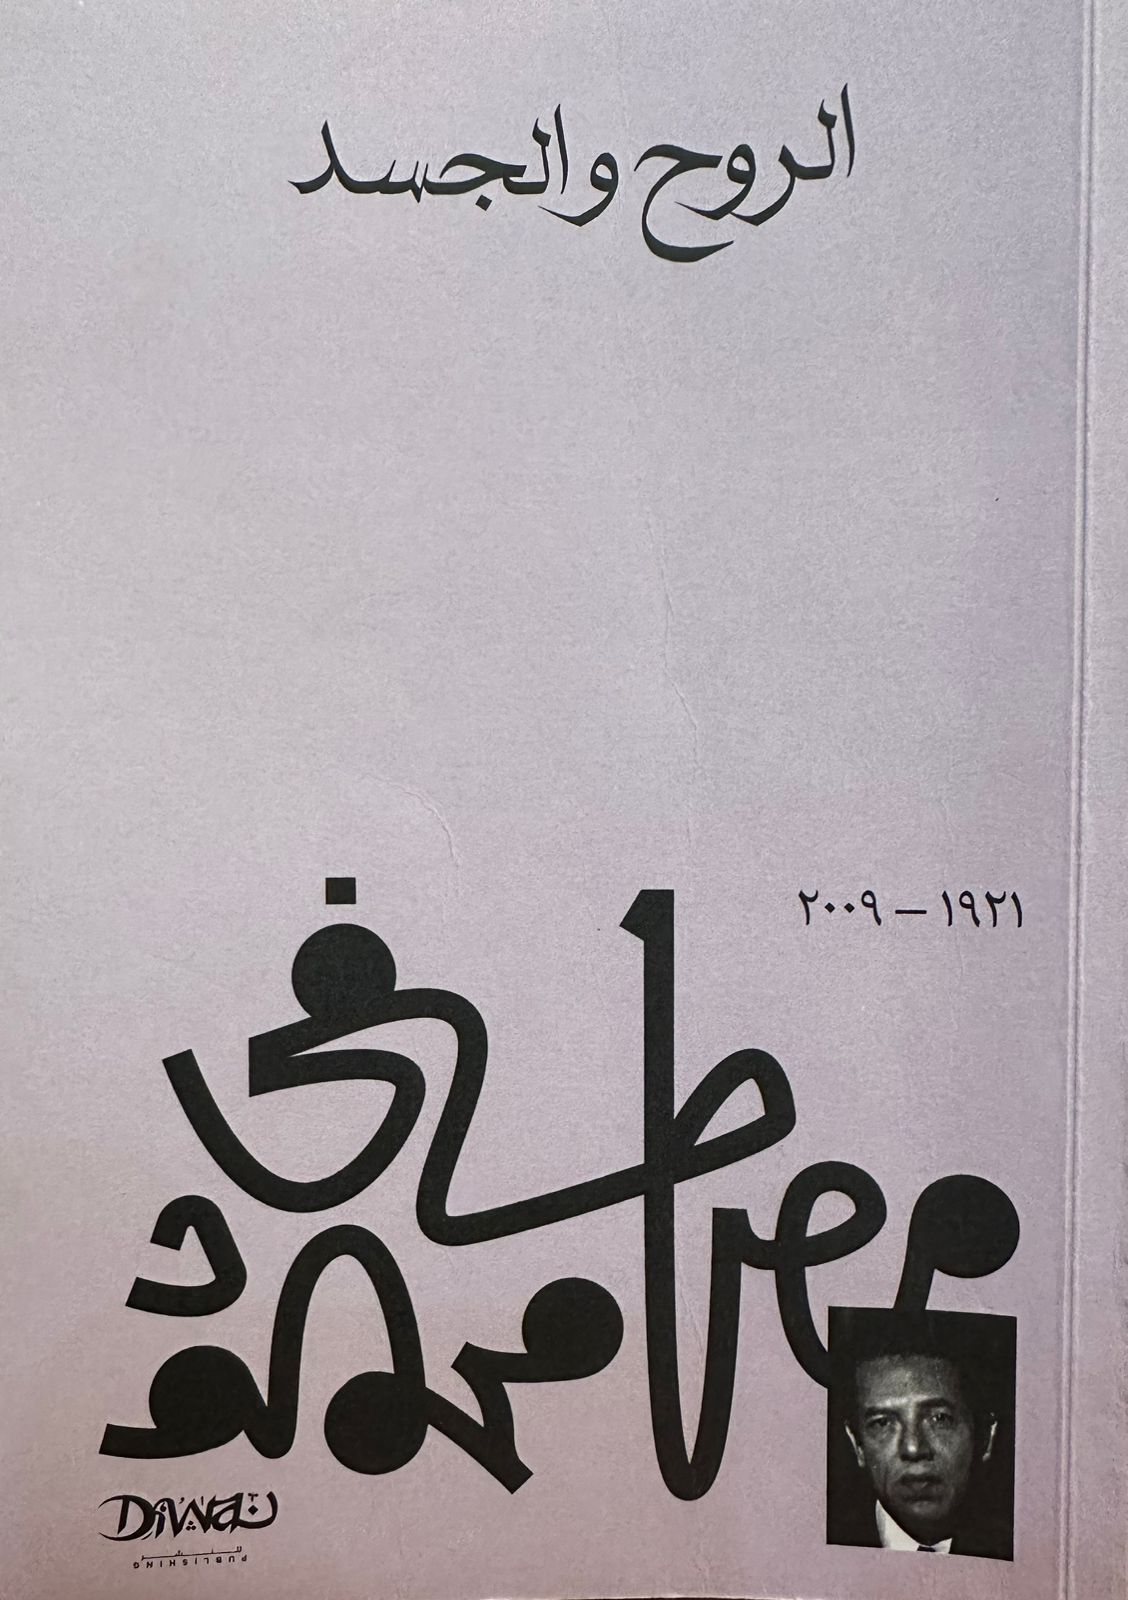 الروح والجسد
١٩٢١ – ٢٠٠٩
مصطفى
محمود
DiWAN ديوان
للنشر
PUBLISHING